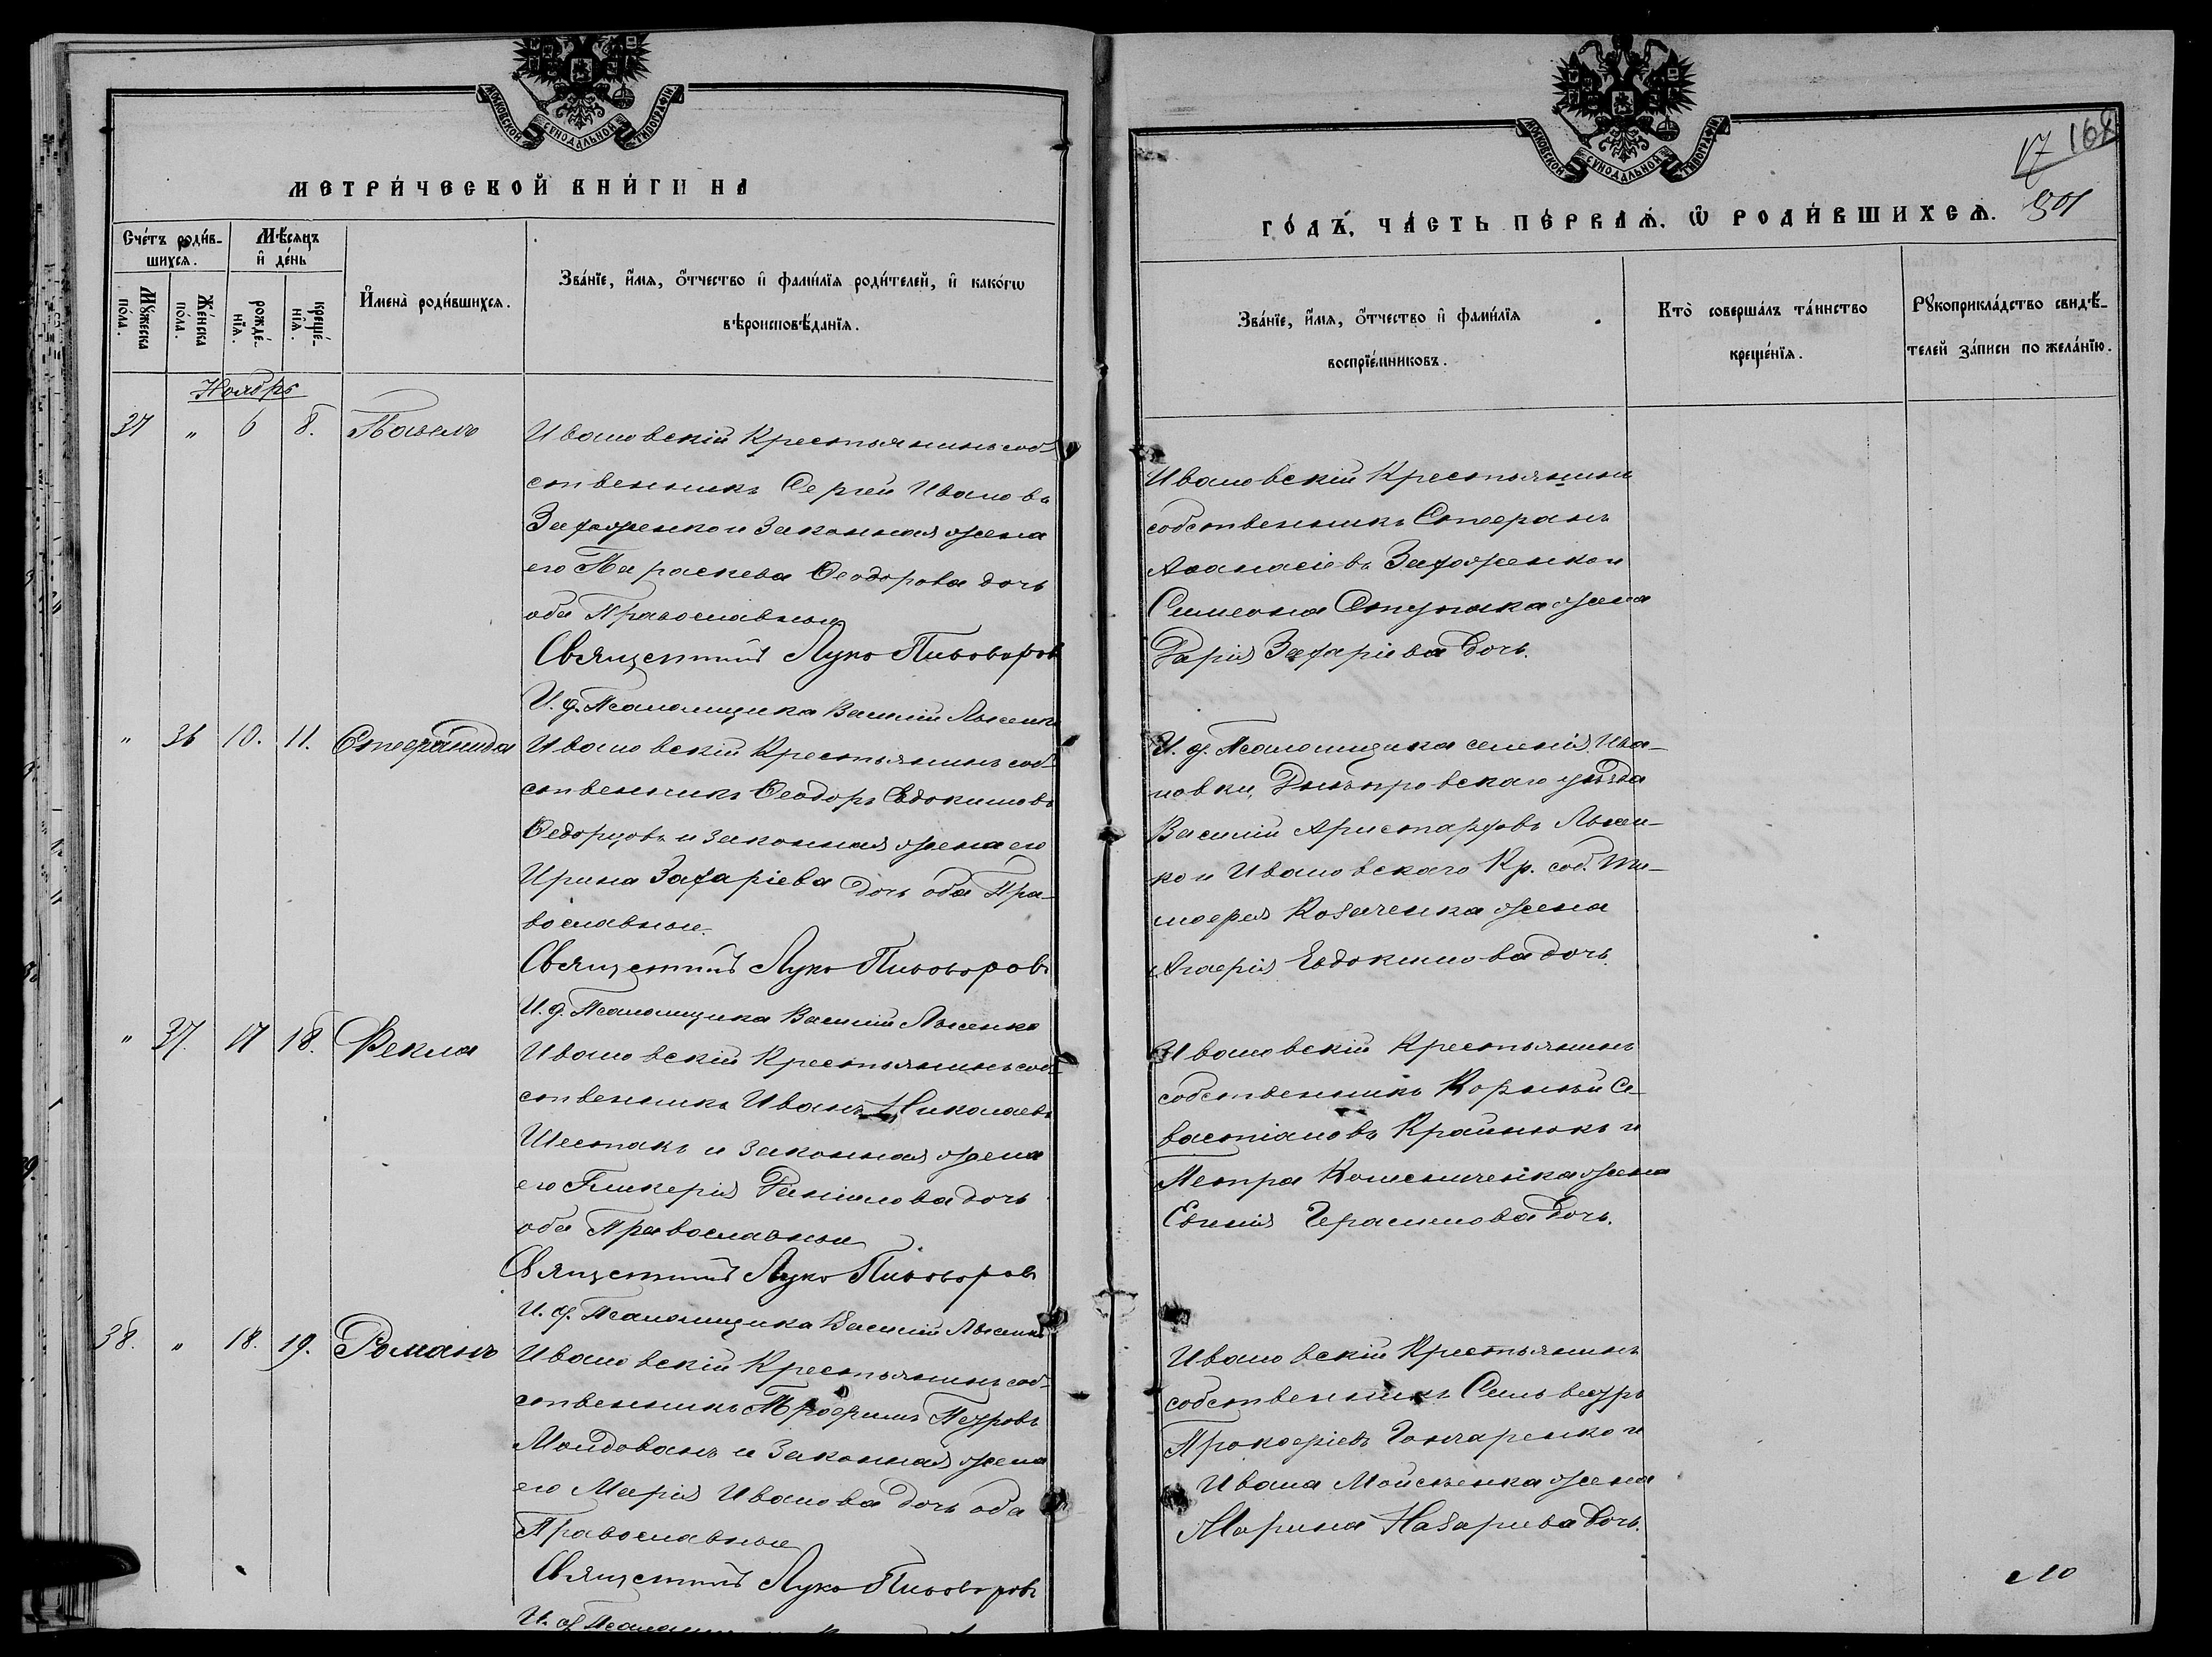 МОСКОВСКОЙ СѴНОДАЛЬНОЙ ТИПОГРАФІИ
МЕТРИ́ЧЕСКОЙ КНИ́ГИ НА
Сче́тъ роди́в-
шихсѧ.
Мѣ́сѧцъ
и҆ де́нь
Мꙋ́жеска
по́ла.
Же́нска
по́ла.
рожде́-
нїѧ.
креще́-
нїѧ.
И҆мена̀ роди́вшихсѧ.
Зва́нїе, и҆́мѧ, ѻ҆́тчество и҆ фами́лїѧ роди́телей, и҆ како́гѡ
вѣроисповѣ́данїѧ.
Ноябрь
37 " 6 8. Павелъ
Ивановскій Крестьянинъ соб-
ственникъ Сергій Ивановъ
Захоженко и законная жена
его Параскева Ѳеодорова дочь
оба Православные
Священникъ Лука Пивоваровъ
И. д. Псаломщика Василій Лысенко
" 36 10. 11. Стефанида
Ивановскій Крестьянинъ соб-
ственникъ Ѳеодоръ Евдокимовъ
Ѳедорцовъ и законная жена его
Ирина Захаріева дочь оба Пра-
вославные.
Священникъ Лука Пивоваровъ
И. д. Псаломщика Василій Лысенко
" 37. 17 18. Ѳекла
Ивановскій Крестьянинъ соб-
ственникъ Иванъ Николаевъ
Шестакъ и законная жена
его Гликерія Даніилова дочь
оба Православные
Священникъ Лука Пивоваровъ
И. д. Псаломщика Василій Лысенко
38. " 18. 19. Романъ
Ивановскій Крестьянинъ соб-
ственникъ Трофимъ Петровъ
Молдованъ и законная жена
его Марія Иванова дочь оба
Православные
Священникъ Лука Пивоваровъ
И. д. Псаломщика
МОСКОВСКОЙ СѴНОДАЛЬНОЙ ТИПОГРАФІИ
17 168
501
ГО́ДЪ, ЧА́СТЬ ПЕ́РВАѦ, Ѡ҆ РОДИ́ВШИХСѦ.
Зва́нїе, и҆́мѧ, ѻ҆́тчество и҆ фами́лїѧ
воспрїе́мниковъ.
Кто̀ соверша́лъ та́инство
креще́нїѧ.
Рꙋкоприкла́дство свидѣ́-
телей за́писи по жела́нїю.
Ивановскій Крестьянинъ
собственникъ Стефанъ
Аѳанасіевъ Захоженко и
Симеона Ступака жена
Дарія Захаріева дочь.
И. д. Псаломщика селенія Ива-
новки, Днѣпровскаго уѣзда
Василій Аристарховъ Лысен-
ко и Ивановскаго Кр. соб. Ти-
моѳея Козаченка жена
Агафія Евдокимова дочь.
Ивановскій Крестьянинъ
собственникъ Корнѣй Се-
вастіановъ Крайнюкъ и
Петра Колесниченка жена
Евгенія Герасимова дочь.
Ивановскій Крестьянинъ
собственникъ Сильвестръ
Прокофіевъ Гончаренко и
Ивана Мойсѣенка жена
Марина Назаріева дочь.